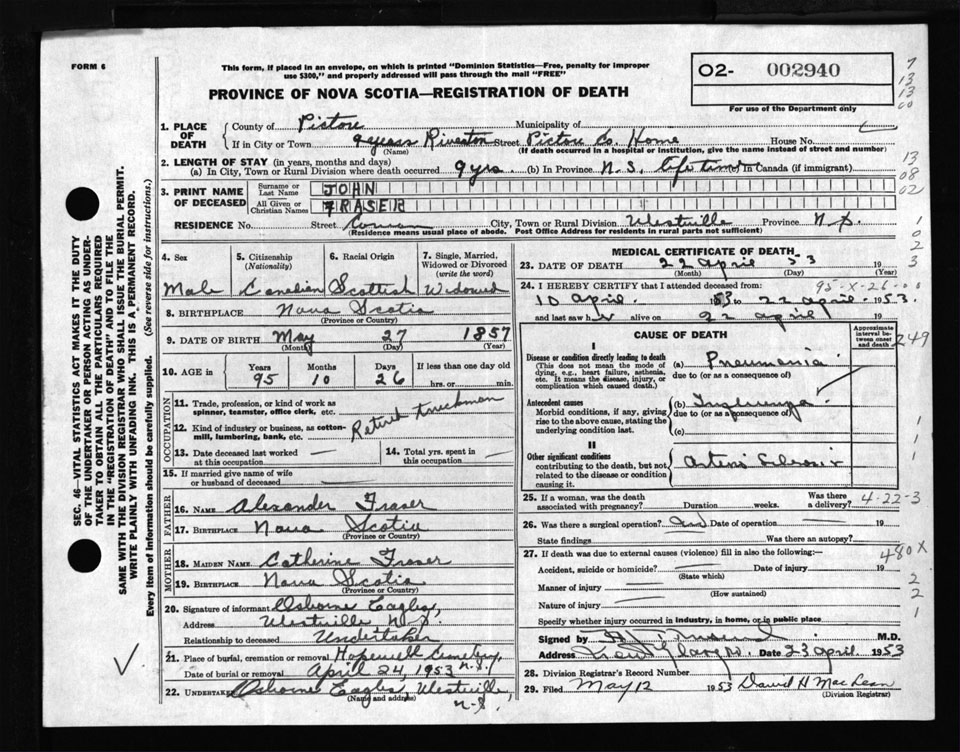 FORM 6
This form, if placed in an envelope, on which is printed "Dominion Statistics—Free, penalty for improper
use $300," and properly addressed will pass through the mail "FREE"
PROVINCE OF NOVA SCOTIA—REGISTRATION OF DEATH
O2- 002940
For use of the Department only
7
13
13
00
1. PLACE OF DEATH
County of Pictou Municipality of
If in City or Town Riverton Street Pictou Co. Home House No.
(Name) (If death occurred in a hospital or institution, give the name instead of street and number)
2. LENGTH OF STAY (in years, months and days)
(a) In City, Town or Rural Division where death occurred 9 yrs. (b) In Province N.S. lifetime (c) In Canada (if immigrant)
13
08
02
3. PRINT NAME OF DECEASED
Surname or Last Name JOHN
All Given or Christian Names FRASER
RESIDENCE No. Street Cowan City, Town or Rural Division Westville Province N.S.
(Residence means usual place of abode. Post Office Address for residents in rural parts not sufficient)
1
0
2
3
SEC. 46—VITAL STATISTICS ACT MAKES IT THE DUTY
OF THE UNDERTAKER OR PERSON ACTING AS UNDER-
TAKER TO OBTAIN ALL THE PARTICULARS REQUIRED
IN THE "REGISTRATION OF DEATH" AND TO FILE THE
SAME WITH THE DIVISION REGISTRAR WHO SHALL ISSUE THE BURIAL PERMIT.
WRITE PLAINLY WITH UNFADING INK. THIS IS A PERMANENT RECORD.
Every item of information should be carefully supplied. (See reverse side for instructions.)
4. Sex Male
5. Citizenship (Nationality) Canadian
6. Racial Origin Scottish
7. Single, Married, Widowed or Divorced (write the word) Widowed
8. BIRTHPLACE Nova Scotia
(Province or Country)
9. DATE OF BIRTH May 27 1857
(Month) (Day) (Year)
10. AGE in Years 95 Months 10 Days 26 If less than one day old hrs. or min.
OCCUPATION
11. Trade, profession, or kind of work as
spinner, teamster, office clerk, etc.
12. Kind of industry or business, as cotton-
mill, lumbering, bank, etc.
Retired Truckman
13. Date deceased last worked at this occupation
14. Total yrs. spent in this occupation
15. If married give name of wife
or husband of deceased
FATHER
16. Name Alexander Fraser
17. Birthplace Nova Scotia
(Province or Country)
MOTHER
18. Maiden Name Catherine Fraser
19. Birthplace Nova Scotia
(Province or Country)
20. Signature of informant Osborne Eagles
Address Westville N.S.
Relationship to deceased Undertaker
21. Place of burial, cremation or removal Hopewell Cemetery, N.S.
Date of burial or removal April 24, 1953
22. Undertaker Osborne Eagles, Westville, N.S.
(Name and address)
MEDICAL CERTIFICATE OF DEATH
23. DATE OF DEATH 22 April 53 19
(Month) (Day) (Year)
24. I HEREBY CERTIFY that I attended deceased from:
95-X-26-00
10 April 1953 to 22 April 1953
and last saw h alive on 22 April 19
CAUSE OF DEATH
Approximate interval between onset and death
249
I
Disease or condition directly leading to death
(This does not mean the mode of
dying, e.g., heart failure, asthenia,
etc. It means the disease, injury, or
complication which caused death.)
(a) Pneumonia
due to (or as a consequence of)
Antecedent causes
Morbid conditions, if any, giving
rise to the above cause, stating the
underlying condition last.
(b) Influenza
due to (or as a consequence of)
(c)
II
Other significant conditions
contributing to the death, but not
related to the disease or condition
causing it.
Arterio Sclerosis
1
1
1
25. If a woman, was the death associated with pregnancy? Duration weeks. Was there a delivery?
4-22-3
26. Was there a surgical operation? Date of operation 19
State findings Was there an autopsy?
27. If death was due to external causes (violence) fill in also the following:—
480X
Accident, suicide or homicide? Date of injury 19
(State which)
Manner of injury
(How sustained)
Nature of injury
Specify whether injury occurred in industry, in home, or in public place
2
2
1
Signed by M.D.
Address New Glasgow Date 23 April 1953
28. Division Registrar's Record Number
29. Filed May 12 1953 David H MacLean
(Division Registrar)